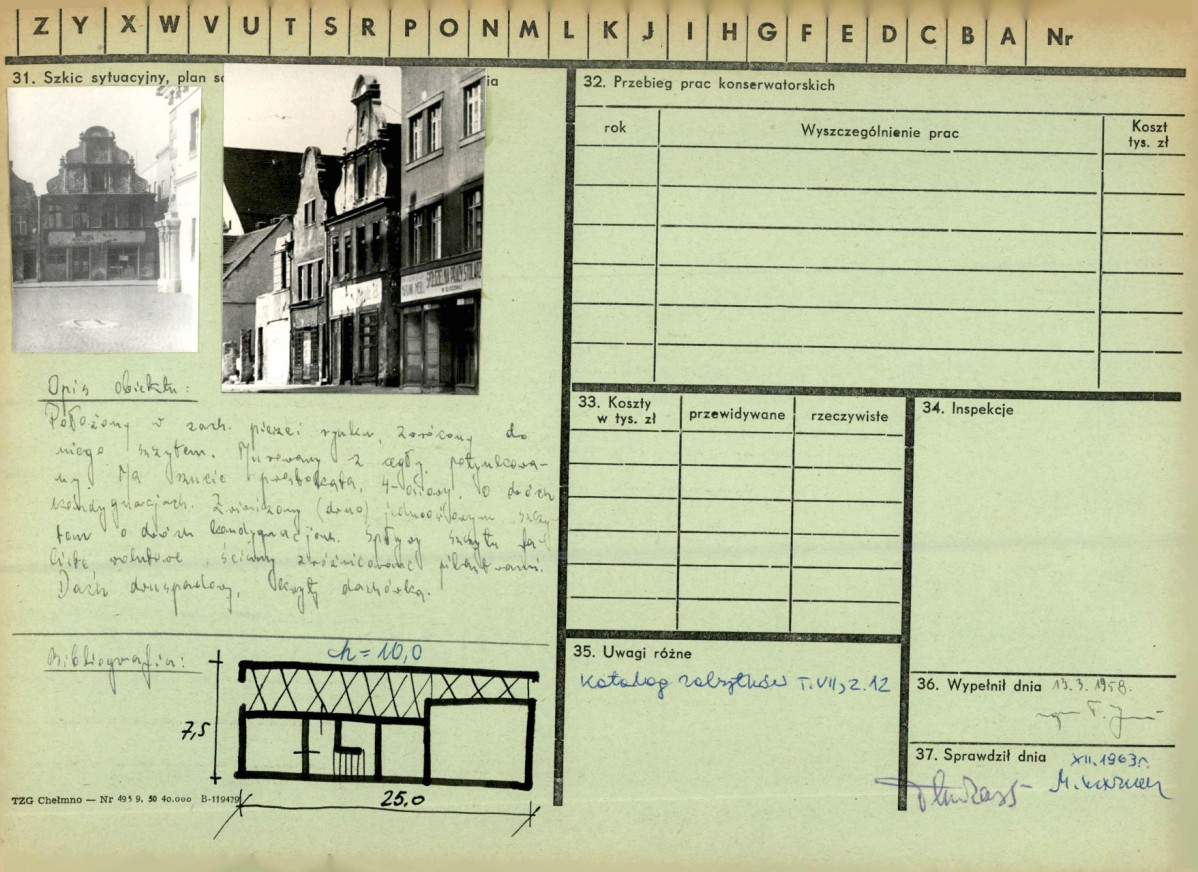 Z Y X W V U T S R P O N M L K J I H G F E D C B A Nr
31. Szkic sytuacyjny, plan
ia
SPÓŁDZIELNIA PRACY STOLARZ
Opis obiektu:
Położony w zach. pierzei rynku, zwrócony do
niego szczytem. Murowany z cegły, potynkowa-
ny. Na rzucie prostokąta, 4-osiowy, o dwóch
kondygnacjach. Zwieńczony (dwu) jednoosiowym szczy
tem o dwóch kondygnacjach. Spływy szczytu fa-
liste wolutowe, ściany zróżnicowane pilastrami.
Dach dwuspadowy, kryty dachówką.
Bibliografia:
h = 10,0
7,5
25,0
TZG Chełmno — Nr 495 9. 50 40.000 B-119479
32. Przebieg prac konserwatorskich
rok Wyszczególnienie prac Koszt tys. zł
33. Koszty w tys. zł przewidywane rzeczywiste
34. Inspekcje
35. Uwagi różne
Katalog zabytków T. VII, z. 12
36. Wypełnił dnia 13.3.1958.
mgr T.
37. Sprawdził dnia XII.1963r.
M.